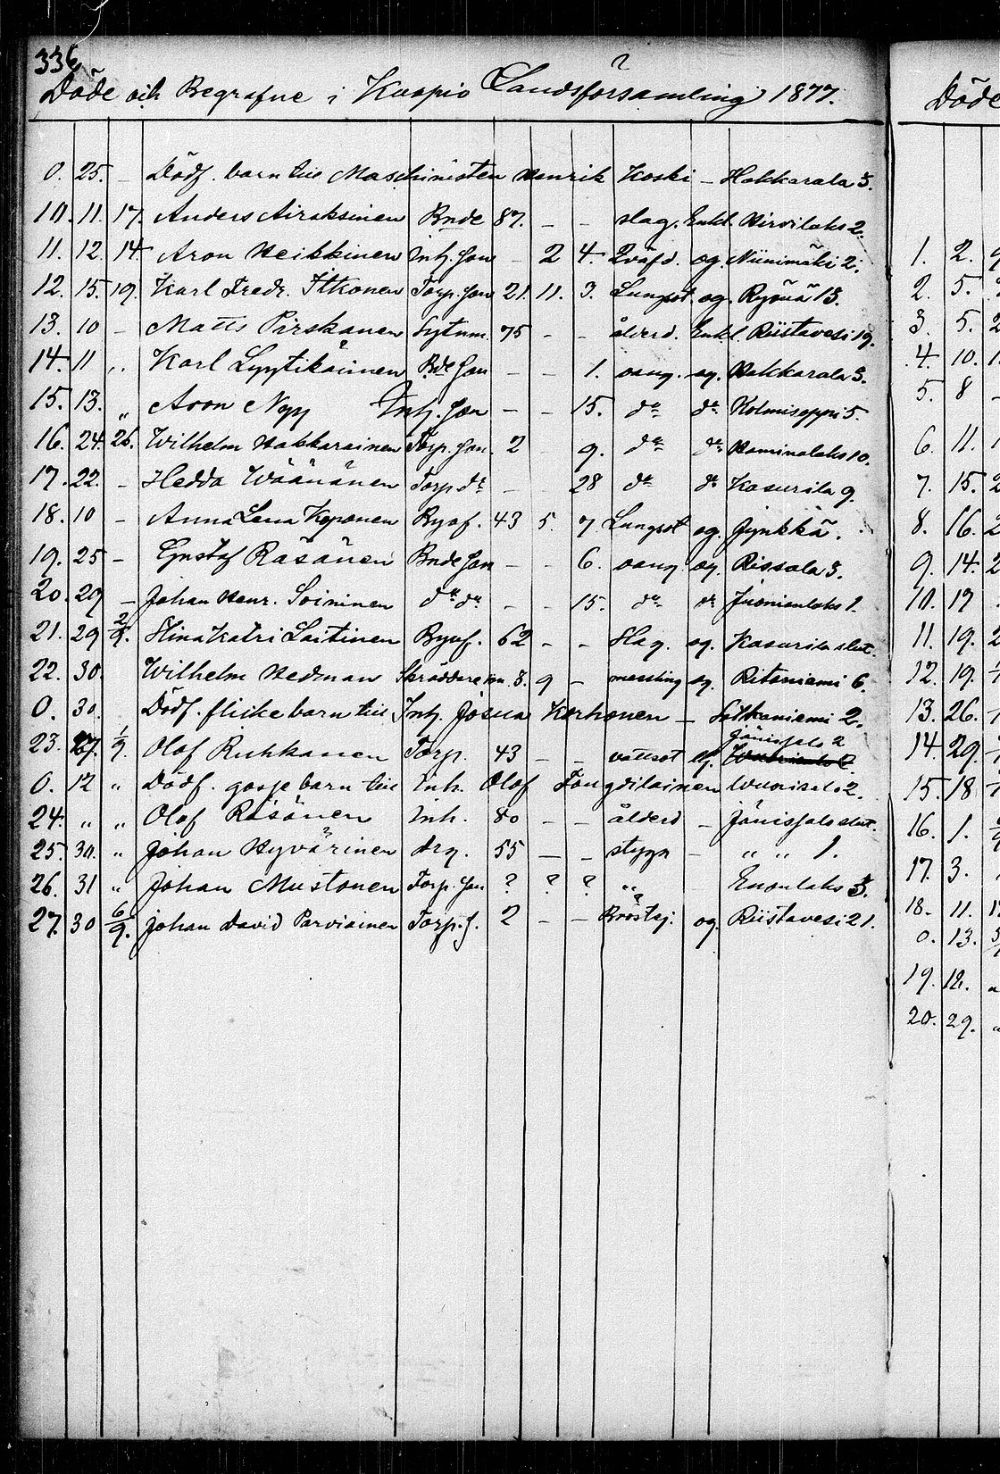 336
Döde och Begrafne i Kuopio Landsförsamling 1877.
0. 25. – Dödf. barn till Maschinisten Henrik Koski – Hakkarala 5.
10. 11. 17. Anders Airaksinen Bnde 87. – – slag. Enkl. Hirvilaks 2.
11. 12. 14 Aron Heikkinen Inh. son – 2 4. Qväfd. og. Niinimäki 2.
12. 15. 19. Karl Fredr. Itkonen Torp. son 21. 11. 3. Lungsot og. Ryönä 13.
13. 10 – Matts Pirskanen Sytnm. 75 – – ålderd. Enkl. Riistavesi 19.
14. 11 „ Karl Lyytikäinen Bde son – – 1. oang. og. Hakkarala 5.
15. 13. „ Aron Nyy Inh. son – – 15. do do Kolmisoppi 5.
16. 24. 26. Wilhelm Hakkarainen Torp. son. 2 – 9. do do Haminalaks 10.
17. 22. – Hedda Wäänänen Torp dr – – 28 do do Kasurila 9.
18. 10 – Anna Lena Keponen 43 5. 7 Lungsot og. Jynkkä.
19. 25 – Gustaf Räsänen Bnde son – – 6. oang. og. Rissala 3.
20. 29 – Johan Henr. Soininen do do – – 15. do do 1.
21. 29 2/9. Stina Katri Laitinen 62 – – Slag. og. Kasurila slut.
22. 30. Wilhelm Hedman Skräddare son 8. 9 – messling og. Ritoniemi 6.
0. 30. Dödf. flicke barn till Inh. Josua Korhonen – Sotkaniemi 2.
Jänissalo 2
23. 27. 1/9. Olof Ruhkanen Torp. 43 – – vattsot
0. 12 „ Dödf. gosse barn till Inh. Olof 2.
24. „ „ Olof Räsänen Inh. 80 – – ålderd – Jänissalo slut.
25. 30. „ Johan Hyvärinen drg. 55 – – stygn – „ „ 1.
26. 31 „ Johan Mustonen Torp. son ? ? ? „ Enonlaks 3.
27. 30 6/9. Johan David Parviainen Torp. s. 2 – – Bröstsj. og. Riistavesi 21.
Döde
1. 2.
2. 5.
3. 5. 2
4. 10. 1
5. 8 –
6. 11. 1
7. 15. 2
8. 16. 2
9. 14. 2
10. 17
11. 19. 2
12. 19.
13. 26.
14. 29.
15. 18
16. 1.
17. 3.
18. 11.
0. 13.
19. 12.
20. 29.